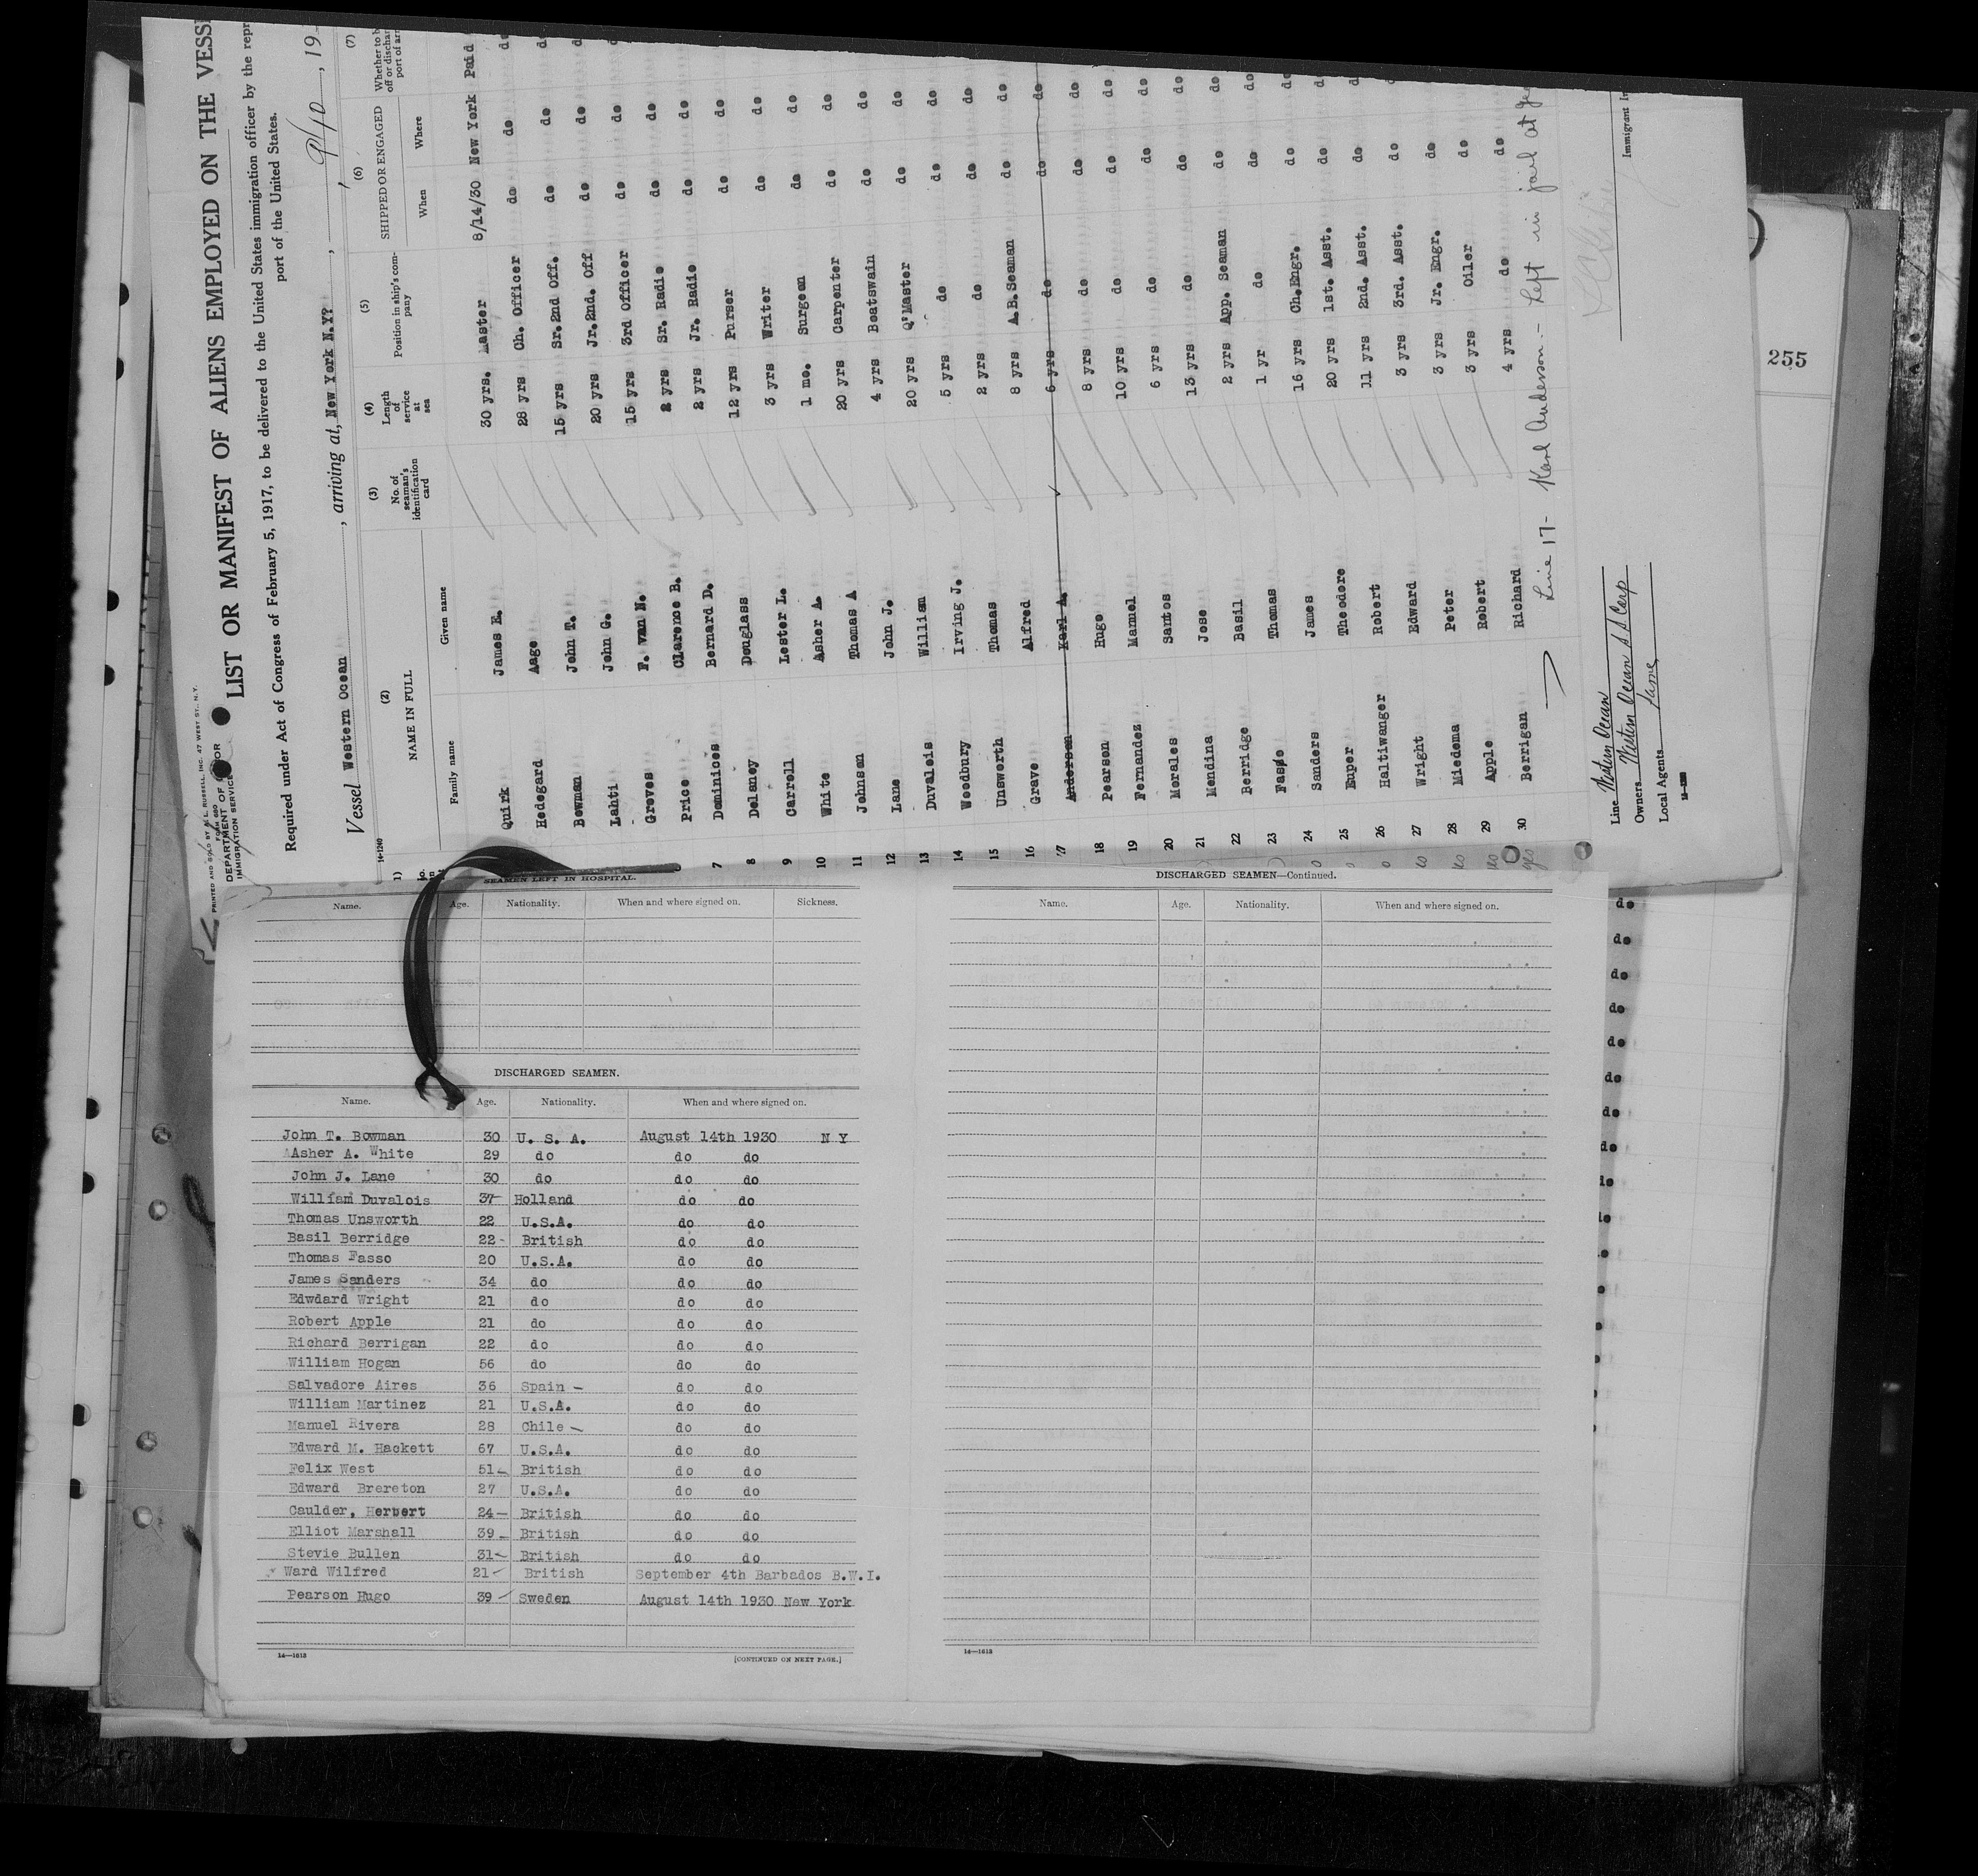 PRINTED AND SOLD BY M. L. RUSSELL, INC. 47 WEST ST., N.Y.
FORM 680
DEPARTMENT OF LABOR
IMMIGRATION SERVICE
LIST OR MANIFEST OF ALIENS EMPLOYED ON THE VESS
Required under Act of Congress of February 5, 1917, to be delivered to the United States immigration officer by the repr
port of the United States.
Vessel Western Ocean, arriving at, New York N.Y?, 9/10, 19
14-1240
(1) (2) (3) (4) (5) (6) (7)
NAME IN FULL No. of seaman's identification card Length of service at sea Position in ship's company SHIPPED OR ENGAGED Whether to b off or dischar port of arr
Family name Given name When Where
Quirk James E. 30 yrs. Master 8/14/30 New York Paid
Hedegard Aage 28 yrs Ch. Officer do do do
Bowman John T. 15 yrs Sr. 2nd Off. do do d
Lahti John G. 20 yrs Jr. 2nd. Off do do d
Groves F. van N. 15 yrs 3rd Officer do do do
Price Clarence B. 2 yrs Sr. Radio do do do
7 Dominices Bernard D. 2 yrs Jr. Radio do do do
8 Delaney Douglass 12 yrs Purser do do do
9 Carroll Lester L. 3 yrs Writer do do do
10 White Asher A. 1 mo. Surgeon do do do
11 Johnson Thomas A 20 yrs Carpenter do do do
12 Lane John J. 4 yrs Boatswain do do do
13 Duvalois William 20 yrs Q'Master do do do
14 Woodbury Irving J. 5 yrs do do do do
15 Unsworth Thomas 2 yrs do do do do
16 Grave Alfred 8 yrs A.B. Seaman do do do
17 Anderson Karl A. 6 yrs do do do
18 Pearson Hugo 8 yrs do do do do
19 Fernandez Manuel 10 yrs do do do do
20 Morales Santos 6 yrs do do do do
21 Mendina Jose 13 yrs do do do do
22 Berridge Basil 2 yrs App. Seaman do do do
23 Fasso Thomas 1 yr do do do do
24 Sanders James 16 yrs Ch. Engr. do do do
25 Euper Theodore 20 yrs 1st. Asst. do do d
26 Haltiwanger Robert 11 yrs 2nd. Asst. do do d
27 Wright Edward 3 yrs 3rd. Asst. do do d
28 Miedema Peter 3 yrs Jr. Engr. do do
29 Apple Robert 3 yrs Oiler do do
30 Berrigan Richard 4 yrs do do
Line 17- Karl Anderson - Left in jail at
Line Western Ocean
Owners Western Ocean S S Corp
Local Agents Same
Immigrant In
255
SEAMEN LEFT IN HOSPITAL.
Name. Age. Nationality. When and where signed on. Sickness.
DISCHARGED SEAMEN.
Name. Age. Nationality. When and where signed on.
John T. Bowman 30 U. S. A. August 14th 1930 N Y
Asher A. White 29 do do do
John J. Lane 30 do do do
William Duvalois 37 Holland do do
Thomas Unsworth 22 U.S.A. do do
Basil Berridge 22- British do do
Thomas Fasso 20 U.S.A. do do
James Sanders 34 do do do
Edwdard Wright 21 do do do
Robert Apple 21 do do do
Richard Berrigan 22 do do do
William Hogan 56 do do do
Salvadore Aires 36 Spain - do do
William Martinez 21 U.S.A. do do
Manuel Rivera 28 Chile - do do
Edward M. Hackett 67 U.S.A. do do
Felix West 51- British do do
Edward Brereton 27 U.S.A. do do
Caulder, Herbert 24- British do do
Elliot Marshall 39- British do do
Stevie Bullen 31- British do do
Ward Wilfred 21- British September 4th Barbados B.W.I.
Pearson Hugo 39 - Sweden August 14th 1930 New York
14-1613
[CONTINUED ON NEXT PAGE.]
DISCHARGED SEAMEN—Continued.
Name. Age. Nationality. When and where signed on.
14-1613
do
do
do
do
do
do
do
do